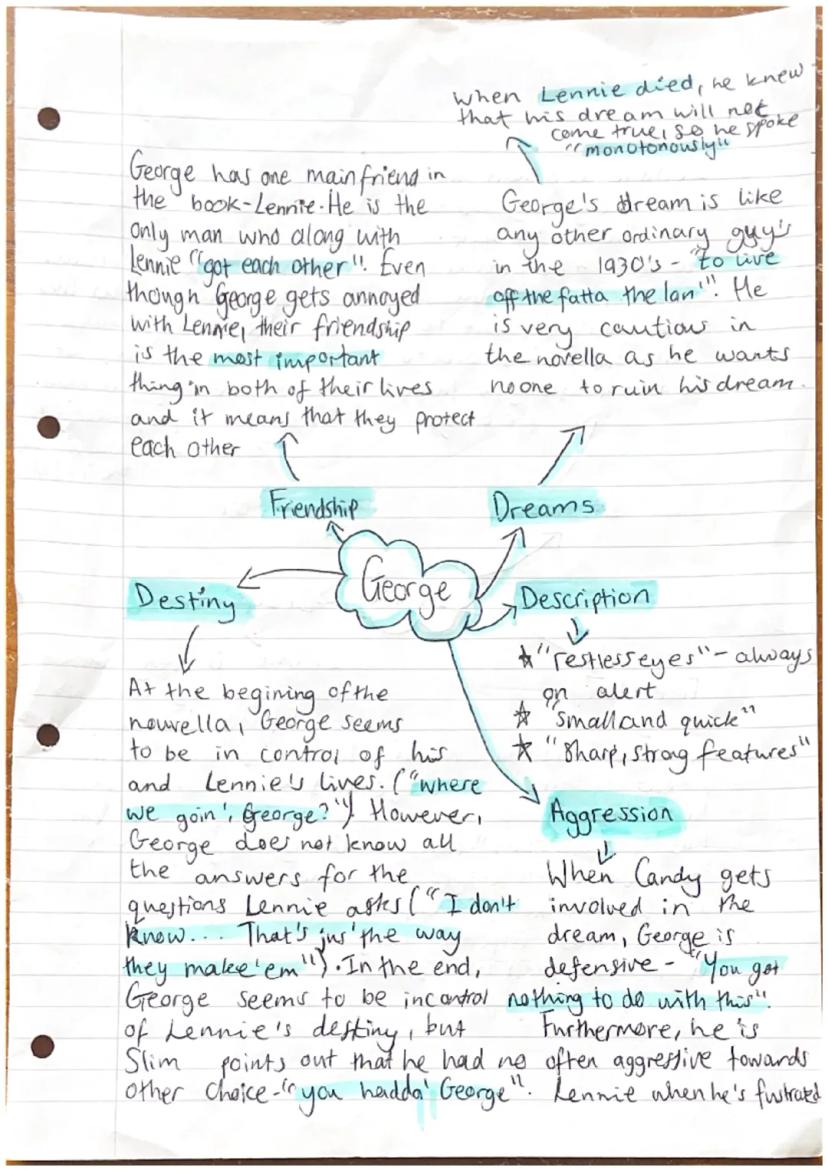 when Lennie died, he knew
that his dream will not
come true, so he spoke
"monotonously"
George has one main friend in
the book-Lennie. He is the
only man who along with
Lennie "got each other". Even
though George gets annoyed
with Lennie, their friendship
is the most important
thing in both of their lives
and it means that they protect
each other
George's dream is like
any other ordinary guy's
in the 1930's - "to live
off the fatta the lan'". He
is very cautious in
the novella as he wants
no one to ruin his dream.
Friendship
Dreams
George
Destiny
Description
"restless eyes" - always
on alert
"small and quick"
"sharp, strong features"
At the begining of the
nouvella, George seems
to be in control of his
and Lennie's lives. ("where
we goin', George?") However,
George does not know all
the answers for the
questions Lennie asks ("I don't
know... That's jus' the way
they make 'em"). In the end,
George seems to be in control
of Lennie's destiny, but
Slim points out that he had no
other choice - "you hadda' George".
Aggression
When Candy gets
involved in the
dream, George is
defensive - "You got
nothing to do with this".
Furthermore, he is
often aggressive towards
Lennie when he's fustrated